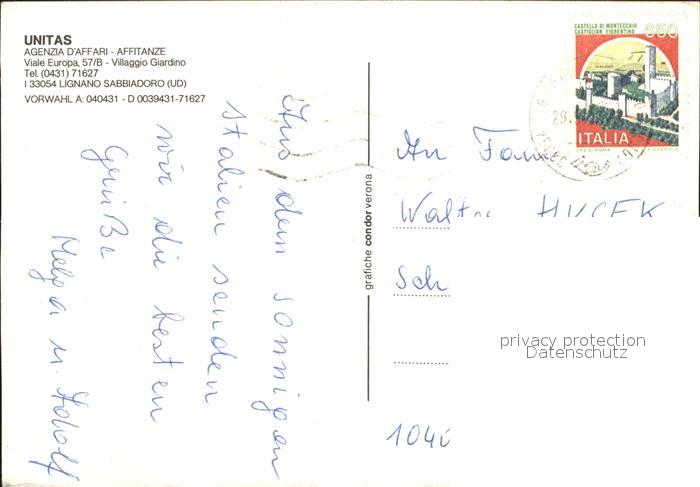 UNITAS
AGENZIA D'AFFARI - AFFITANZE
Viale Europa, 57/B - Villaggio Giardino
Tel. (0431) 71627
I 33054 LIGNANO SABBIADORO (UD)
VORWAHL A: 040431 - D 0039431-71627
Aus dem sonnigen
Italien senden
wir die besten
Grüße
Helga u. Adolf
grafiche condor verona
CASTELLO DI MONTECCHIO
CASTIGLION FIORENTINO
650
ITALIA
An Fam
Walter
Sch
privacy protection
Datenschutz
104